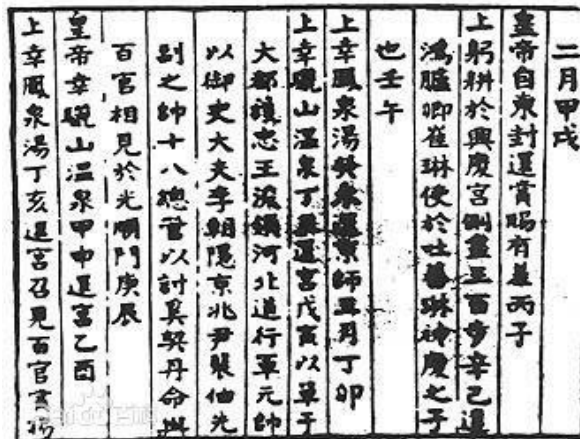 二月甲戌
皇帝自東封還賞賜有差丙子
上躬耕於興慶宮側盡三百步辛巳遣
鴻臚卿崔琳使於吐蕃琳神慶之子
也壬午
上幸鳳泉湯癸未還京師五月丁卯
上幸驪山溫泉丁亥還宮戊寅以單于
大都護忠王浚領河北道行軍元帥
以御史大夫李朝隱京兆尹裴伷先
副之帥十八總管以討奚契丹命與
百官相見於光順門庚辰
皇帝幸驪山溫泉甲申還宮乙酉
上幸鳳泉湯丁亥還宮召見百官